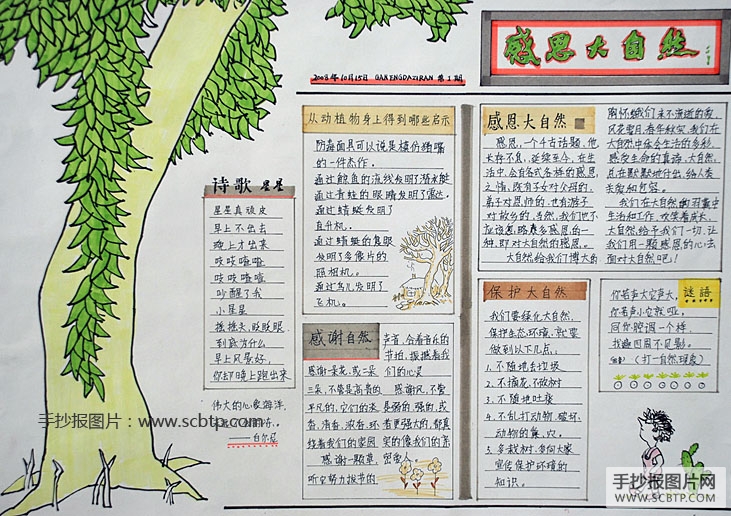 感恩大自然
2008年10月15日 GANENGDAZIRAN 第1期
诗歌 星星
星星真顽皮
早上不出去
晚上才出来
吱吱喳喳
吱吱喳喳
吵醒了我
小星星
摇摇头,眨眨眼
到底为什么
早上风景好,
你却晚上跑出来
伟大的心像海洋,
——白尔尼
从动植物身上得到哪些启示
防毒面具可以说是模仿猪嘴
的一件杰作。
通过鲸鱼的流线发明了潜水艇
通过青蛙的眼睛发明了雷达。
通过蜻蜓发明了
直升机.
通过蜻蜓的复眼
发明了多像片的
照相机。
通过鸟儿发明了
飞机。
感谢自然
感谢一朵花,或二朵
三朵,不管是高贵的
平凡的,它们的浓
香,清香,浓香,环
绕着我们的家园
感谢一颗草,
听它努力拔节的
声音,合着音乐的
节拍,振撼着我
们的心灵
感谢风,不管
是弱的强的,或
者更强大的,都真
实的像我们的苦
感恩大自然
感恩,一个千古话题,他
长存不息,延续至今,在生
活中,会有各式各样的感恩
之情,既有子女对父母的,
弟子对恩师的,也有游子
对故乡的,当然,我们也不
种,即对大自然的感恩。
大自然给我们博大的
胸怀,给我们来不渐逝的爱,
风花雪月,春华秋实,我们在
大自然中体会生活的多彩,
感受生命的真谛,大自然,
总在默默地付出,给人类
关爱和包容。
我们在大自然的羽翼中
生活和工作,欢笑着成长,
大自然给予我们一切,让
我们用一颗感恩的心去
面对大自然吧!
保护大自然
我们要绿化大自然,
保护生态环境,就要
做到以下几点:
1. 不随地丢垃圾
2. 不摘花,不砍树
3. 不随地吐痰
4. 不乱打动物,破坏
动物的巢,穴。
5. 多栽树,多向大家
宣传保护环境的
知识。
谜语
你若声大它声大,
你若声小它就哑,
同你腔调一个样,
找遍四周不见影。
(打一自然现象)
手抄报图片:www.scbtp.com
手抄报图片网
WWW.SCBTP.COM